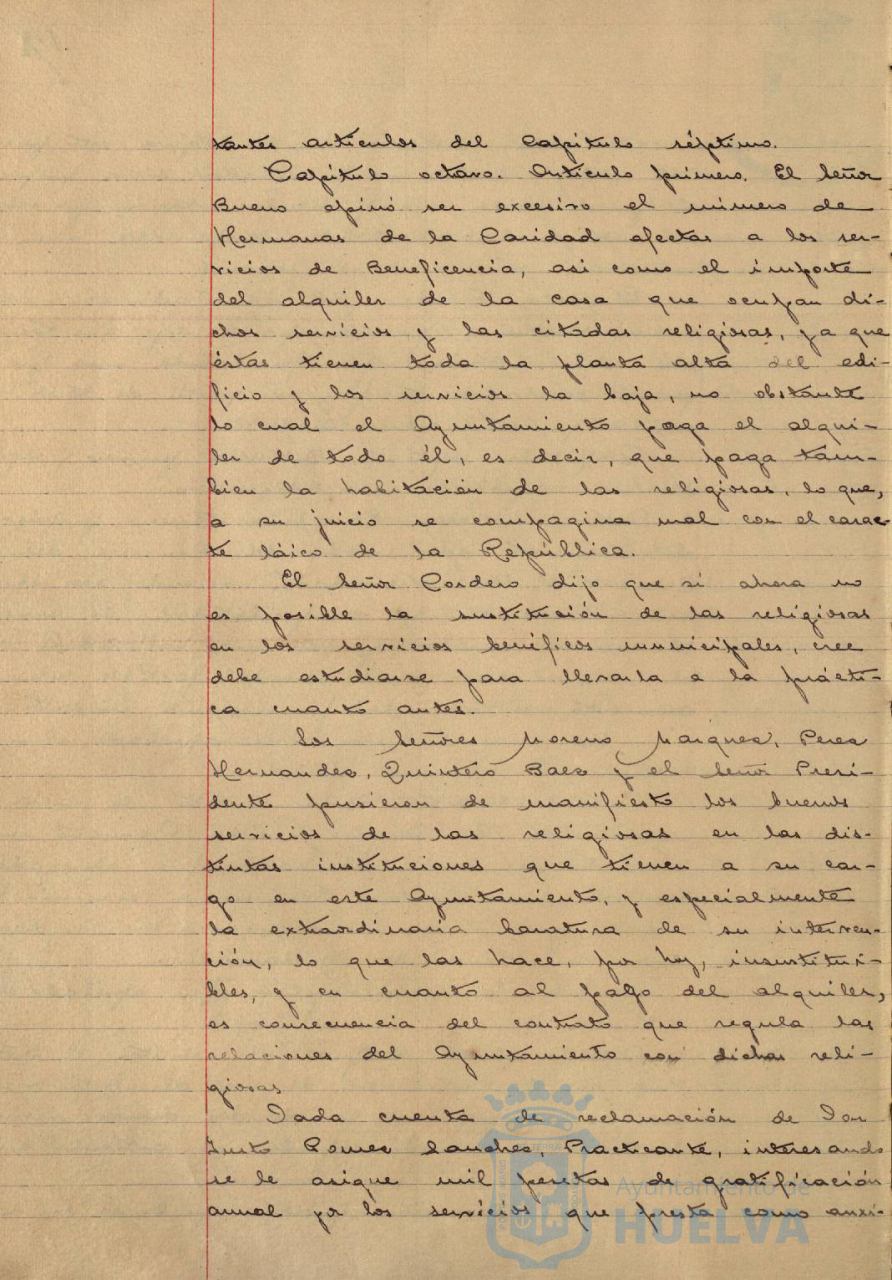 tantes artículos del Capítulo séptimo.
Capítulo octavo. Artículo primero. El Señor
Bueno opinó ser excesivo el número de
Hermanas de la Caridad afectas a los ser-
vicios de Beneficencia, asi como el importe
del alquiler de la casa que ocupan di-
chos servicios y las citadas religiosas, ya que
éstas tienen toda la planta alta del edi-
ficio y los servicios la baja, no obstante
lo cual el Ayuntamiento paga el alqui-
ler de todo él, es decir, que paga tam-
bien la habitación de las religiosas, lo que,
a su juicio se compagina mal con el carac-
te láico de la República.
El Señor Cordero dijo que si ahora no
es posible la sustitución de las religiosas
en los servicios benéficos municipales, cree
debe estudiarse para llevarla a la prácti-
ca cuanto antes.
Los Señores Moreno Marquez, Perez
Hernandez, Quintero Baez y el Señor Presi-
dente pusieron de manifiesto los buenos
servicios de las religiosas en las dis-
tintas instituciones que tienen a su car-
go en este Ayuntamiento, y especialmente
la extraordinaria baratura de su interven-
ción, lo que las hace, por hoy, insustitui-
bles, y en cuanto al pago del alquiler,
es consecuencia del contrato que regula las
relaciones del Ayuntamiento con dichas reli-
giosas
Dada cuenta de reclamación de Don
Justo Gomez Sanchez, Practicante, interesando
se le asigne mil pesetas de gratificación
annal por los servicios que presta como auxi-
Ayuntamiento de
HUELVA